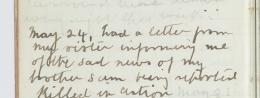 May 24, had a letter from
my sister informing me
of the sad news of my
brother Sam being reported
Killed in action